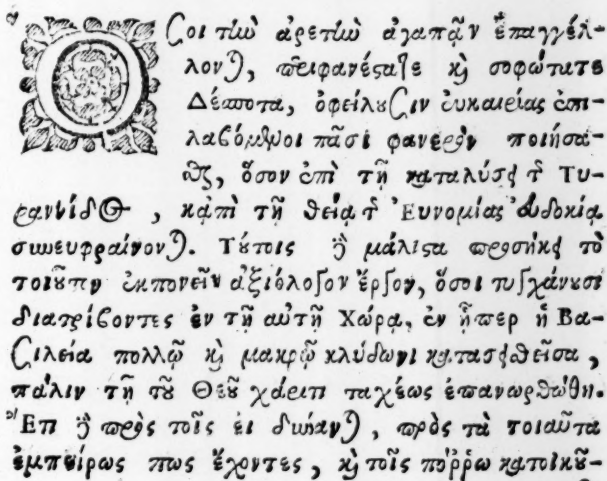 Ὅσοι τὴν ἀρετὴν ἀγαπᾶν ἐπαγγέλ-
λονται, περιφανέςατε καὶ σοφώτατε
Δέσποτα, ὀφείλουσιν εὐκαιρίας ἐπι-
λαβόμενοι πᾶσι φανερὸν ποιήσα-
σθαι, ὅσον ἐπὶ τῇ καταλύσει τῆς Τυ-
ραννίδος, κἀπὶ τῇ θείᾳ τῆς Ἐυνομίας ἐυδοκίᾳ
συνευφραίνονται. Τούτοις δὲ μάλιςα προσήκει τὸ
τοιοῦτον ἐκπονεῖν ἀξιόλογον ἔργον, ὅσοι τυγχάνουσι
διατρίβοντες ἐν τῇ αὐτῇ Χώρᾳ, ἐν ᾗπερ ἡ Βα-
σιλεία πολλῷ καὶ μακρῷ κλύδωνι κατασεισθεῖσα,
πάλιν τῇ τοῦ Θεοῦ χάριτι ταχέως ἐπανωρθώθη.
Ἔτι δὲ πρὸς τοῖς εἰ δύναιν), πρὸς τὰ τοιαῦτα
ἐμπείρως πως ἔχοντες, καὶ τοῖς πόῤῥω κατοικοῦ-